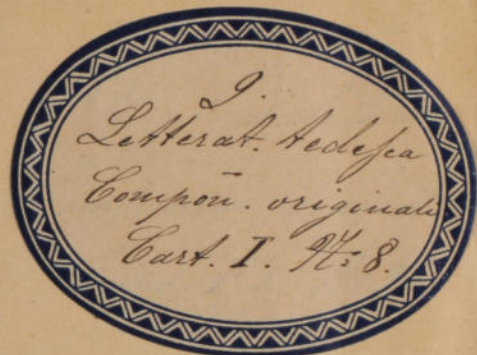 9.
Letterat. tedesca
Compon̄. originali
Cart. I. N: 8.